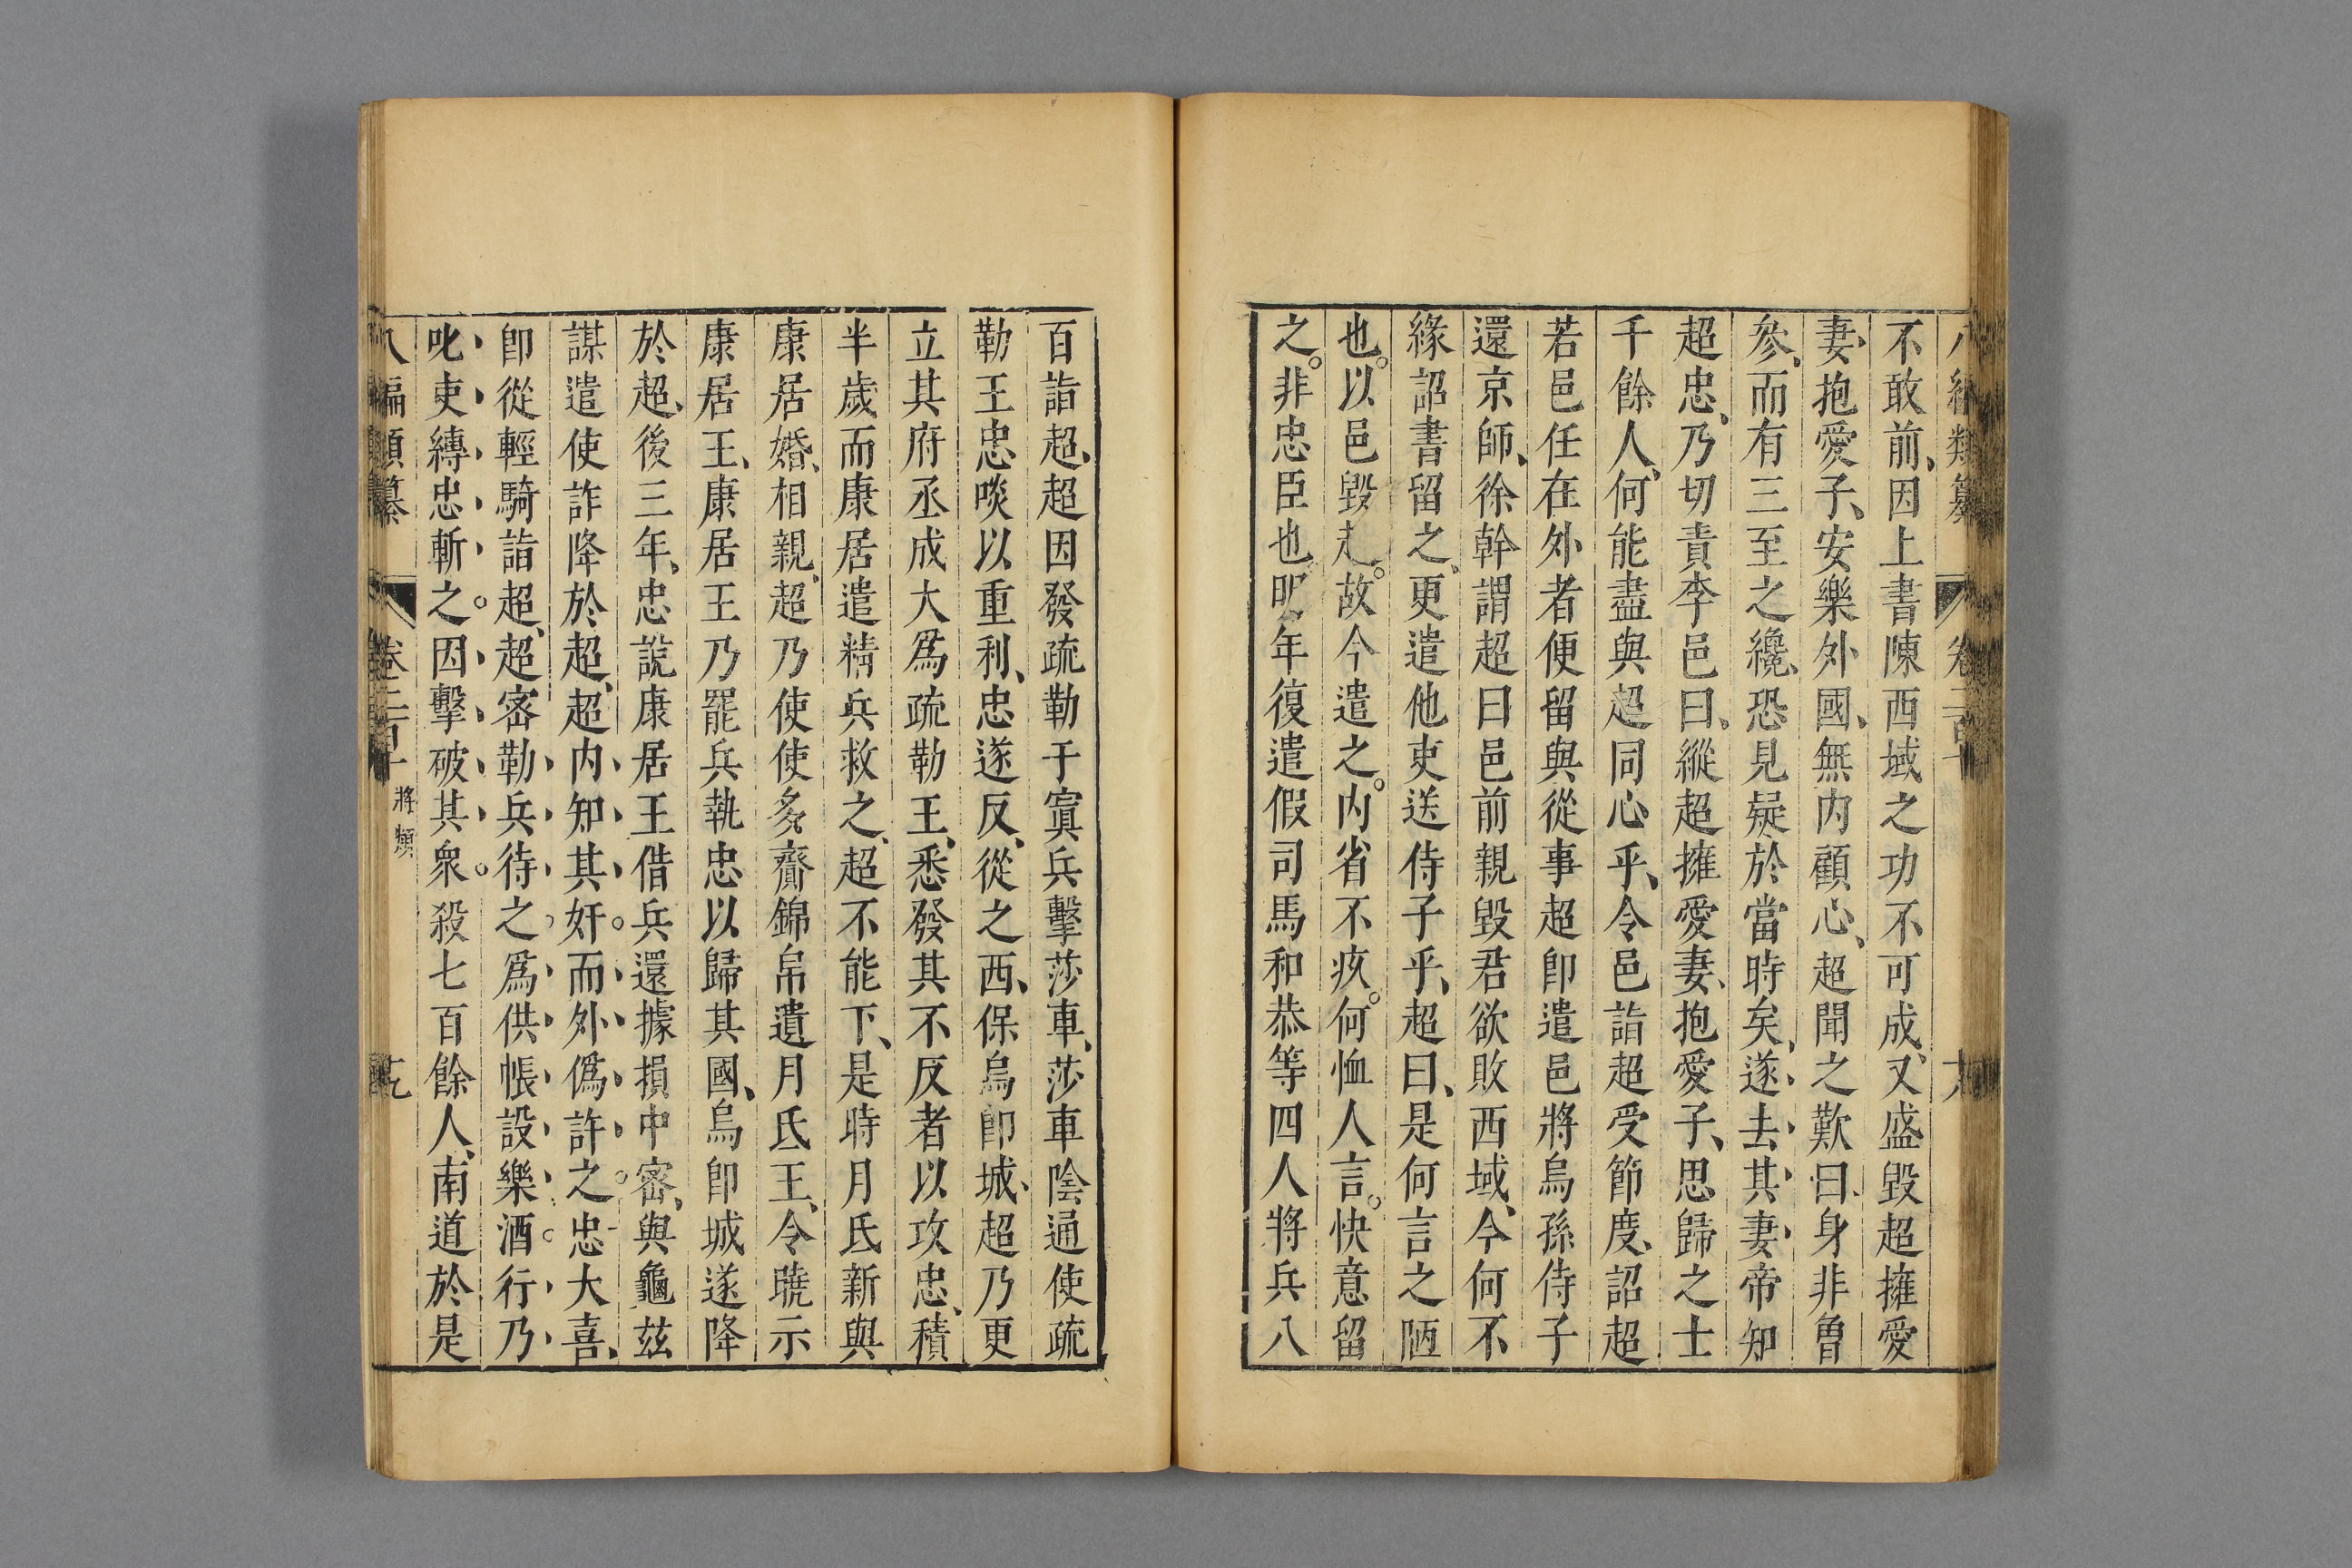 不敢前、因上書陳西域之功不可成、又盛毀超擁愛
妻、抱愛子、安樂外國、無内顧心、超聞之歎曰、身非曾
參、而有三至之纔、恐見疑於當時矣、遂去其妻、帝知
超忠、乃切責李邑曰、縱超擁愛妻、抱愛子、思歸之士
千餘人、何能盡與超同心乎、令邑詣超受節度、詔超
若邑任在外者便留與從事超卽遣邑將烏孫侍子
還京師、徐幹謂超曰邑前親毀君欲敗西域、今何不
緣詔書留之、更遣他吏送侍子乎、超曰、是何言之陋
也。以邑毀超。故今遣之。内省不疚。何恤人言。快意留
之。非忠臣也、明年復遣假司馬和恭等四人將兵八
百詣超、超因發疏勒于寘兵擊莎車、莎車陰通使疏
勒王忠啖以重利、忠遂反、從之西、保烏卽城、超乃更
立其府丞成大爲疏勒王、悉發其不反者以攻忠、積
半歲而康居遣精兵救之、超不能下、是時月氏新與
康居婚、相親、超乃使使多齎錦帛遺月氏王、令曉示
康居王、康居王乃罷兵執忠以歸其國、烏卽城遂降
於超、後三年、忠說康居王借兵還據損中密、與龜茲
謀遣使詐降於超、超内知其奸。而外僞許之。忠大喜、
卽從輕騎詣超、超密勒兵待之、爲供帳設樂酒。行乃
叱吏縛忠斬之。因擊破其衆。殺七百餘人、南道於是
八編類纂 卷二百十 將類 十九